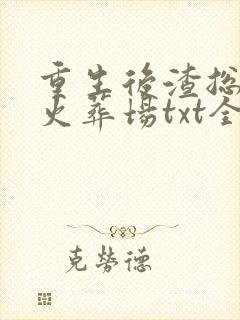 重生后渣总
火葬场txt全
克劳德